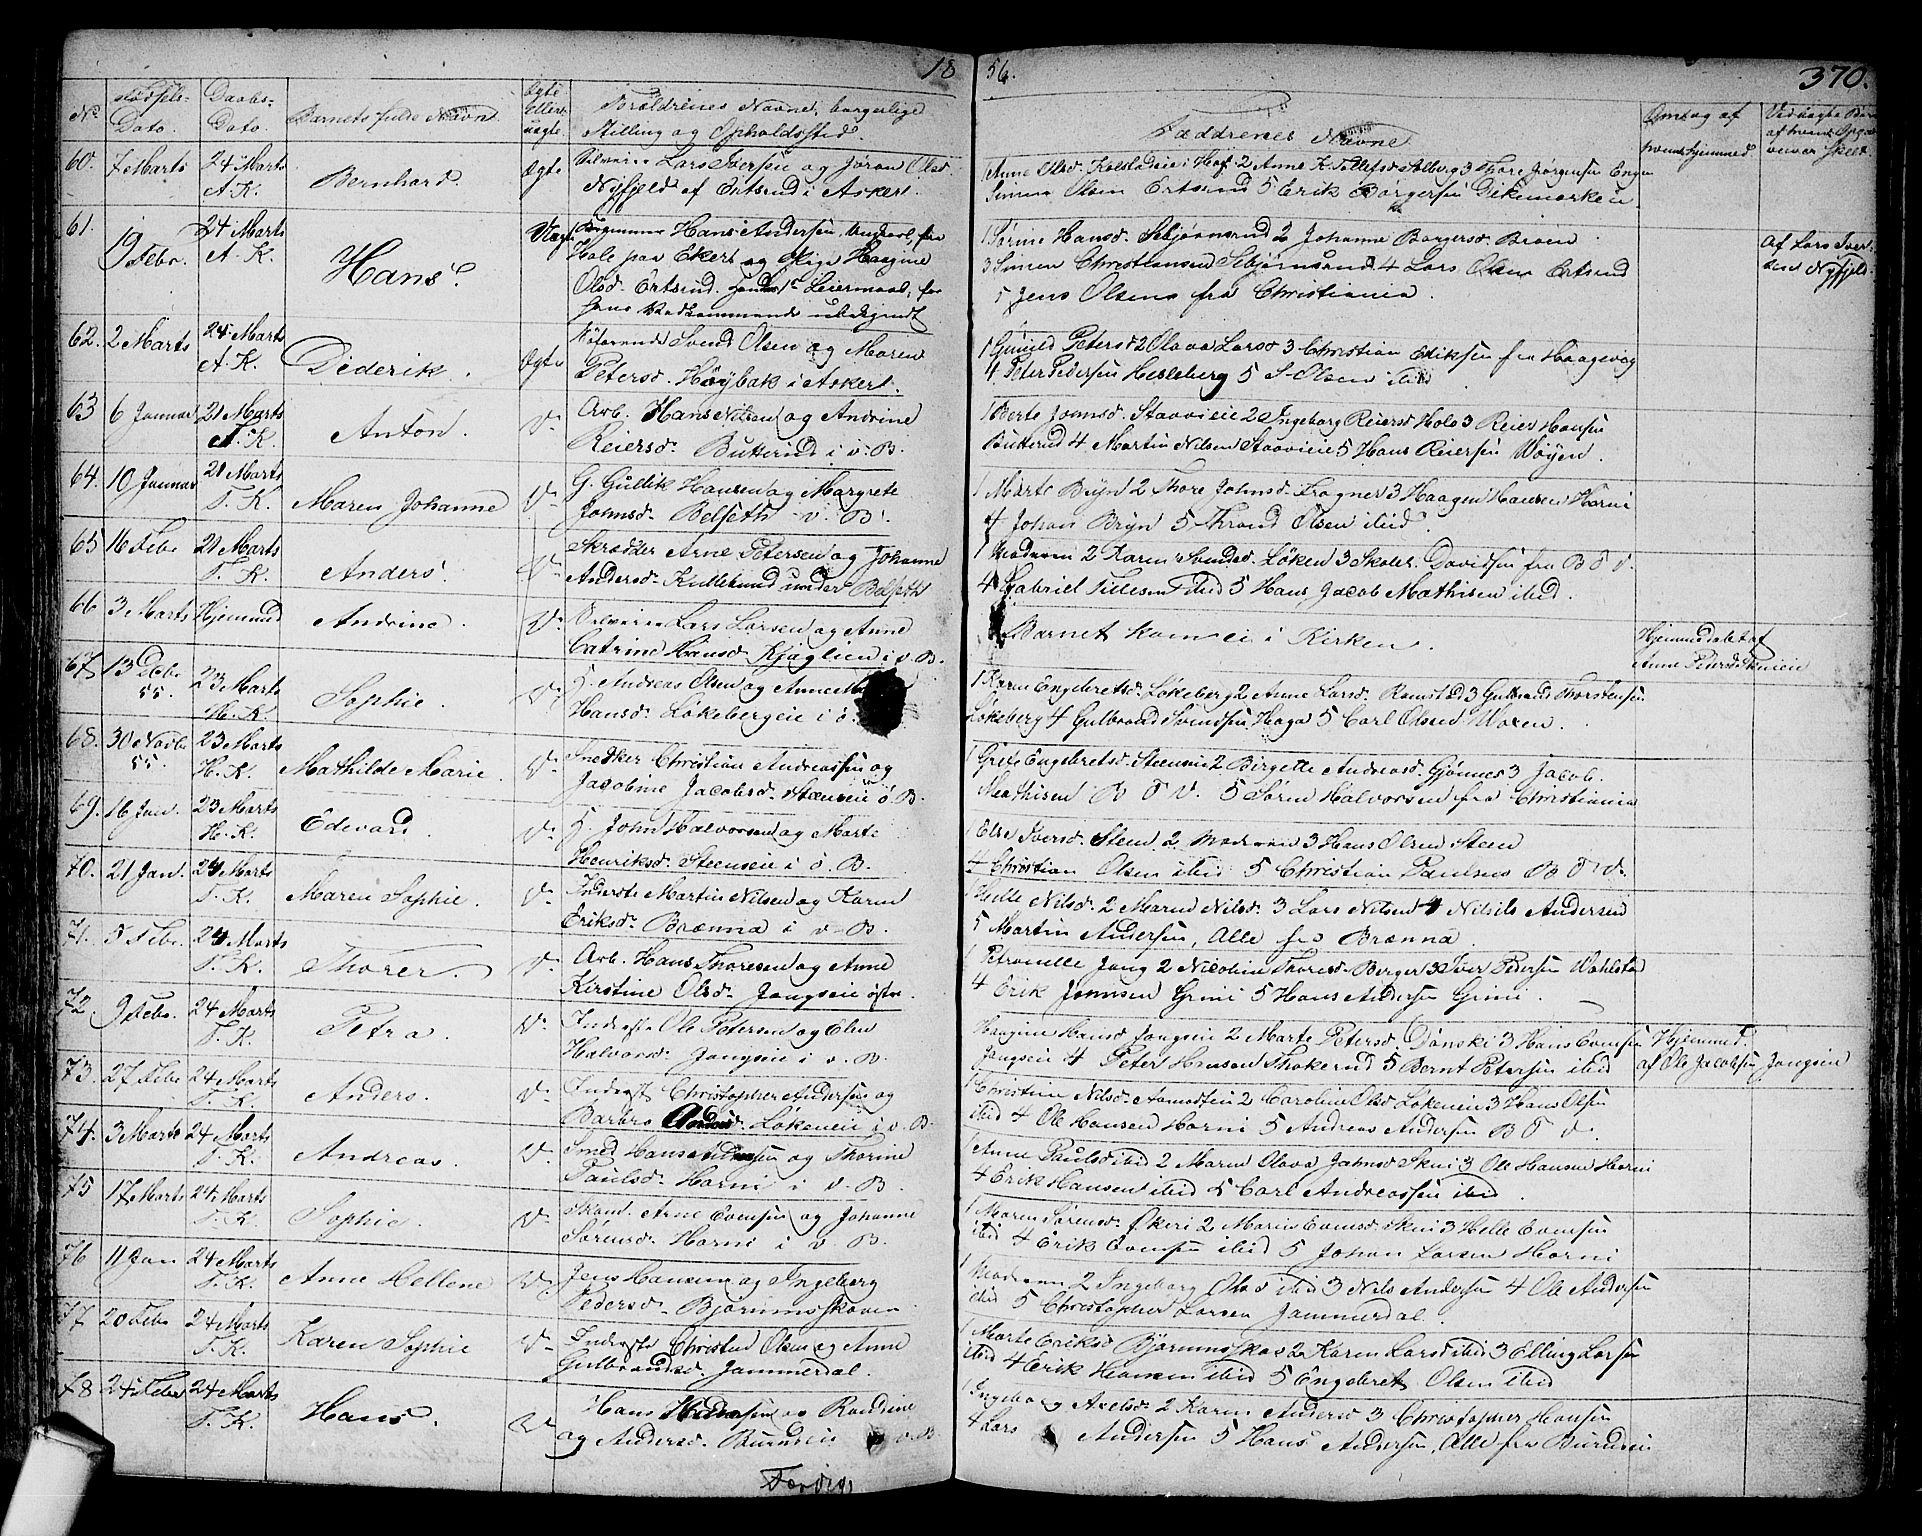 18
56.
370.
No
Fødsels-
Dato.
Daabs-
Dato.
Barnets fulde Navn
Ægte
eller
uægte.
Forældrenes Navne, borgerlige
Stilling og Opholdssted.
Faddrenes Navne
Omsog af
60. 7 Marts 24 Marts Bernhard. Ægte Selveier Lars Iversen og Jøran Olsd.
A. K. Nyfjeld af Ertsrud i Asker.
1 Anne Olsd. Kolstadeie i Hof 2 Anne K. Tollefsd Solberg 3 Thore Jørgensen Engen
Simen Olsen Ertsrud 5 Erik Borgersen Dikemarken
61. 19 Febr. 24 Marts Hans. Uægte Hans Andersen, Ungkarl, fra
A. K. Hole paa Ekert og Pige Haagine
Olsd. Ertsrud. 1ste Leiermaal, for
hans Vedkommende ubekjendt
1 Sørine Hansd. Sebjørnsrud 2 Johanne Borgersd. Breien
3 Simen Christiansen Sebjørnsrud 4 Lars Olsen Ertsrud
5 Jens Olsen fra Christiania.
af Lars Iver-
sen Nyfjeld.
62. 2 Marts 24 Marts Diderik. Ægte Søfarende Svend Olsen og Maren
A. K. Petersd. Høybak i Asker.
1 Gunild Petersd 2 Olava Larsd 3 Christian Eriksen fra Haagevog
4 Peter Pedersen Hesleberg 5 S. Olsen ibid
63 6 Januar 21 Marts Anton. do Arb. Hans Nilsen og Andrine
T. K. Reiersd. Butterud i v. B.
1 Berte Johnsd. Staavieie 2 Ingeborg Reiersd Holo 3 Reier Hansen
Butterud 4 Martin Nilsen Staavieie 5 Hans Reiersen Wøyen.
64. 10 Januar 21 Marts Maren Johanne do G. Gullik Hansen og Margrete
T. K. Johnsd. Belseth v. B.
1 Marte Bryn 2 Thore Johnsd. Frogner 3 Haagen Hansen Horni
4 Johan Bryn 5 Thrond Olsen ibid.
65 16 Febr 21 Marts Anders. do Skrædder Arne Petersen og Johanne
T. K. Andersd. Kullebund under Belseth
1 Moderen 2 Karen Svendsd. Løken 3 Skoler. Davidsen fra B Ø V.
4 Gabriel Tillesen ibid 5 Hans Jacob Mathisen ibid.
66 3 Marts Hjemmed Andrine. do Selveier Lars Larsen og Anne
Catrine Hansd. Kjaglien i v. B.
Barnet kom ei i Kirken.
Hjemmedøbt af
Anne Petersd.
67. 13 Debr 23 Marts Sophie. do H. Andreas Olsen og Anne
55. H. K. Hansd. Løkebergeie i ø
1 Karen Engebretsd. Løkeberg 2 Anne Larsd. Ramstad 3 Gulbrand Thorstensen
Løkeberg 4 Gulbrand Svendsen Haga 5 Carl Olsen Woxen.
68. 30 Novbr 23 Marts Mathilde Marie. do Snedker Christian Andreassen og
55. H. K. Jacobine Jacobsd. Steenseie ø B.
1 Grete Engebretsd. Steenseie 2 Birgette Andreasd. Gjønnes 3 Jacob
Mathisen B Ø V. 5 Søren Halvorsen fra Christiania
69. 16 Jan. 23 Marts Edevard. do H. John Halvorsen og Marte
H. K. Henriksd. Steenseie i ø. B.
1 Else Iversd. Steen 2 Moderen 3 Hans Olsen Steen
4 Christian Olsen ibid 5 Christian Paulsen B Ø V.
70. 21 Jan. 24 Marts Maren Sophie. do Inderste Martin Nilsen og Karen
T. K. Eriksd. Brænna i v. B.
1 Helle Nilsd. 2 Maren Nilsd. 3 Lars Nilsen 4 Nils Andersen
5 Martin Andersen, Alle fra Brænna.
71. 5 Febr. 24 Marts Thorer. do Arb. Hans Thoresen og Anne
T. K. Kirstine Olsd. Jongseie østre.
1 Petronelle Jong 2 Nicoline Thoresd. Berger 3 Iver Pedersen Wahlstad
4 Erik Johnsen Grini 5 Hans Andersen Grini.
72. 9 Febr. 24 Marts Petra. do Inderste Ole Petersen og Elen
T. K. Halvorsd. Jongseie i v. B.
Haagine Hansd Jongseie 2 Marte Petersd. Dønski 3 Hans Evensen
Jongseie 4 Peter Hansen Thokerud 5 Bernt Petersen ibid
Hjemmed.
af Ole Jacobsen Jongseie
73. 27 Febr 24 Marts Anders. do Inderst Christopher Andersen og
T. K. Barbro Løkeneie i v. B.
1 Christine Nilsd. Aamodteie 2 Caroline Olsd Løkeneie 3 Hans Olsen
ibid 4 Ole Hansen Horni 5 Andreas Andersen B Ø V.
74. 3 Marts 24 Marts Andreas. do Smed Hans Andersen og Thorine
T. K. Paulsd. Horni i v. B.
1 Anne Paulsd ibid 2 Maren Olava Johnsd Skui 3 Ole Hansen Horni
4 Erik Hansen ibid 5 Carl Andreassen ibid.
75 17 Marts 24 Marts Sophie. do Skom. Arne Evensen og Johanne
T. K. Sørensd. Horni i v. B.
1 Maren Sørensd. Økeri 2 Maren Evensd Skui 3 Helle Evensen
ibid 4 Erik Evensen ibid 5 Johan Larsen Horni
76 11 Jan 24 Marts Anne Hellene do Jens Hansen og Ingeborg
T. K. Pedersd. Bjørumsskoven
1 Moderen 2 Ingeborg Olsd ibid 3 Nils Andersen 4 Ole Andersen
ibid 5 Christopher Larsen Jammerdal.
77 20 Febr 24 Marts Karen Sophie do Inderste Christen Olsen og Anne
T. K. Gulbrandsd. Jammerdal.
1 Marte Eriksd Bjørumsskov 2 Karen Larsd ibid 3 Elling Larsen
ibid 4 Erik Hansen ibid 5 Engebret Olsen ibid
78 24 Febr 24 Marts Hans. do Hans Pedersen og Randine
T. K. og Andersd. Burudeie v. B
1 Ingeborg Axelsd. 2 Karen Andersd 3 Christopher Hansen
4 Lars Andersen 5 Hans Andersen, Alle fra Burudeie